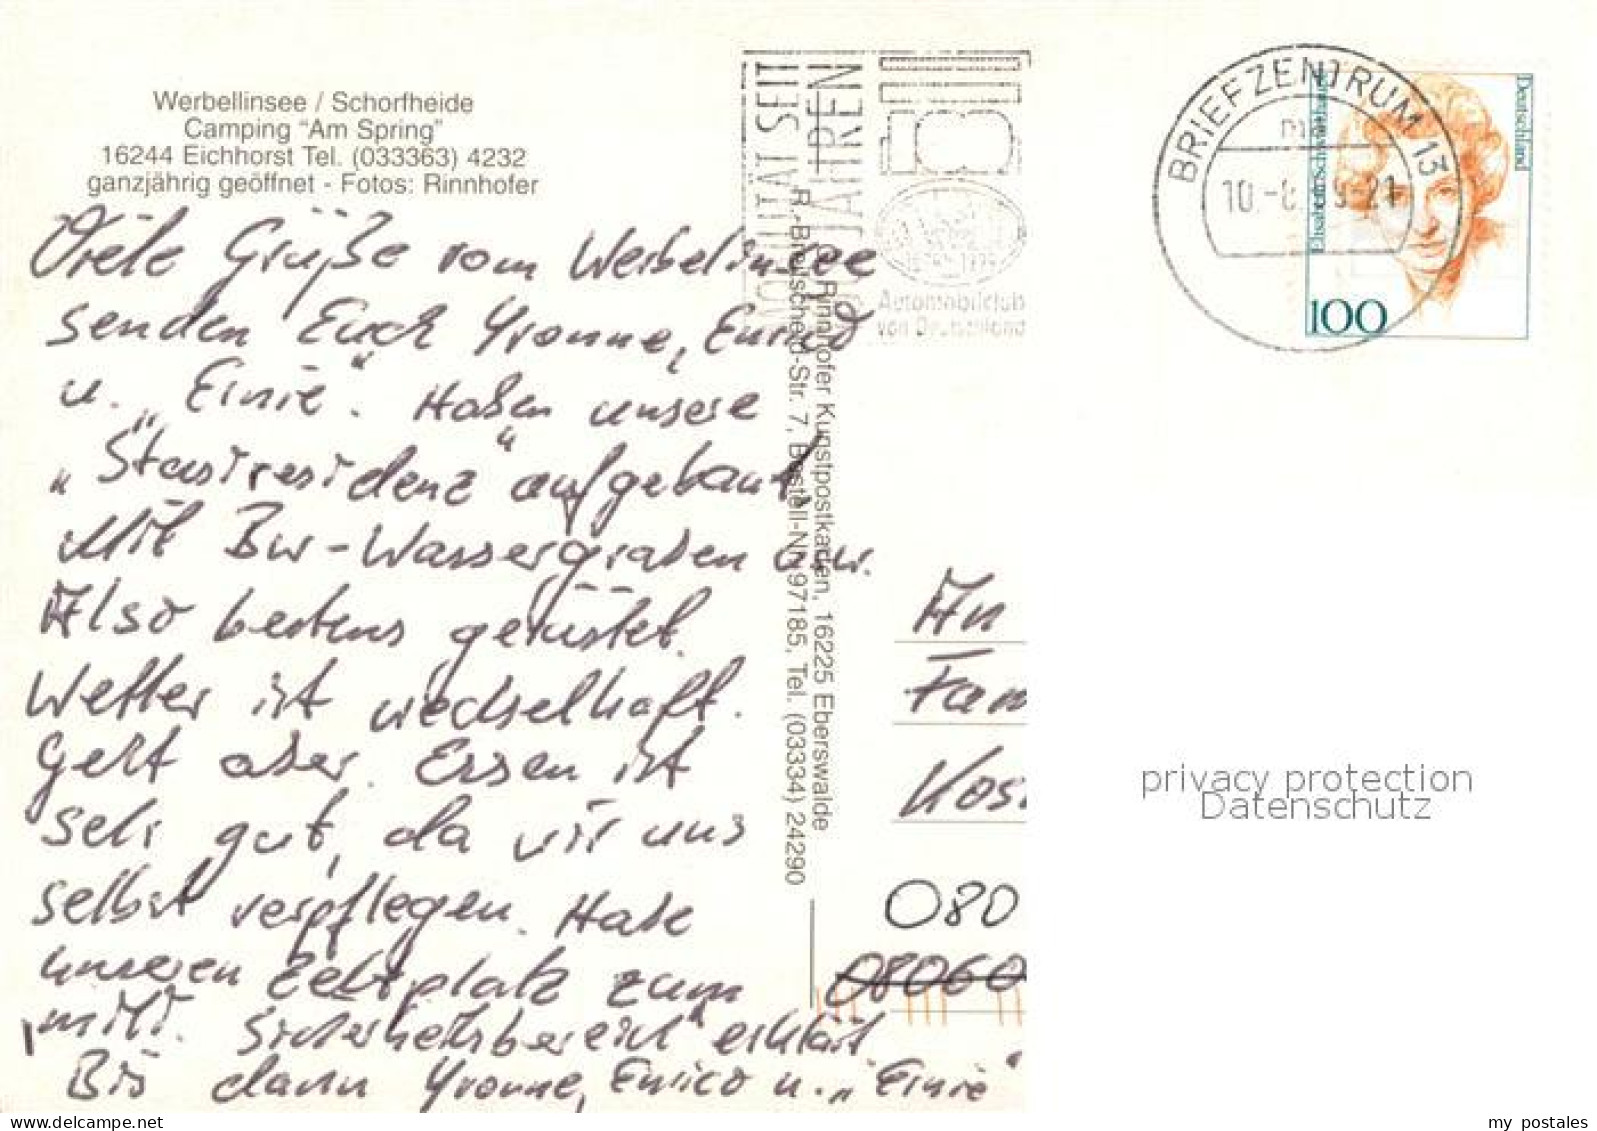 Werbellinsee / Schorfheide
Camping "Am Spring"
16244 Eichhorst Tel. (033363) 4232
ganzjährig geöffnet - Fotos: Rinnhofer
Viele Grüße vom Werbellinsee
senden Euch Yvonne, Enrico
u. „Einie“. Haben unsere
„Stasiresidenz“ aufgebaut.
Mit Bw-Wassergraben usw.
Also bestens gerüstet.
Wetter ist wechselhaft.
Geht aber. Essen ist
sehr gut, da wir uns
selbst verpflegen. Habe
unseren Zeltplatz zum
„milit. Sicherheitsbereich“ erklärt
Bis dann Yvonne, Enrico u. „Einie“
Rinnhofer Kunstpostkarten, 16225 Eberswalde
R.-Breitscheid-Str. 7, Bestell-Nr. 97185, Tel. (03334) 24290
MOBILITÄT SEIT
JAHREN
1899-1999
Automobilclub
von Deutschland
BRIEFZENTRUM 13
Deutschland
Elisabeth Schwarzhaupt
100
An
Fam
080
08060
privacy protection
Datenschutz
my postales
delcampe.net